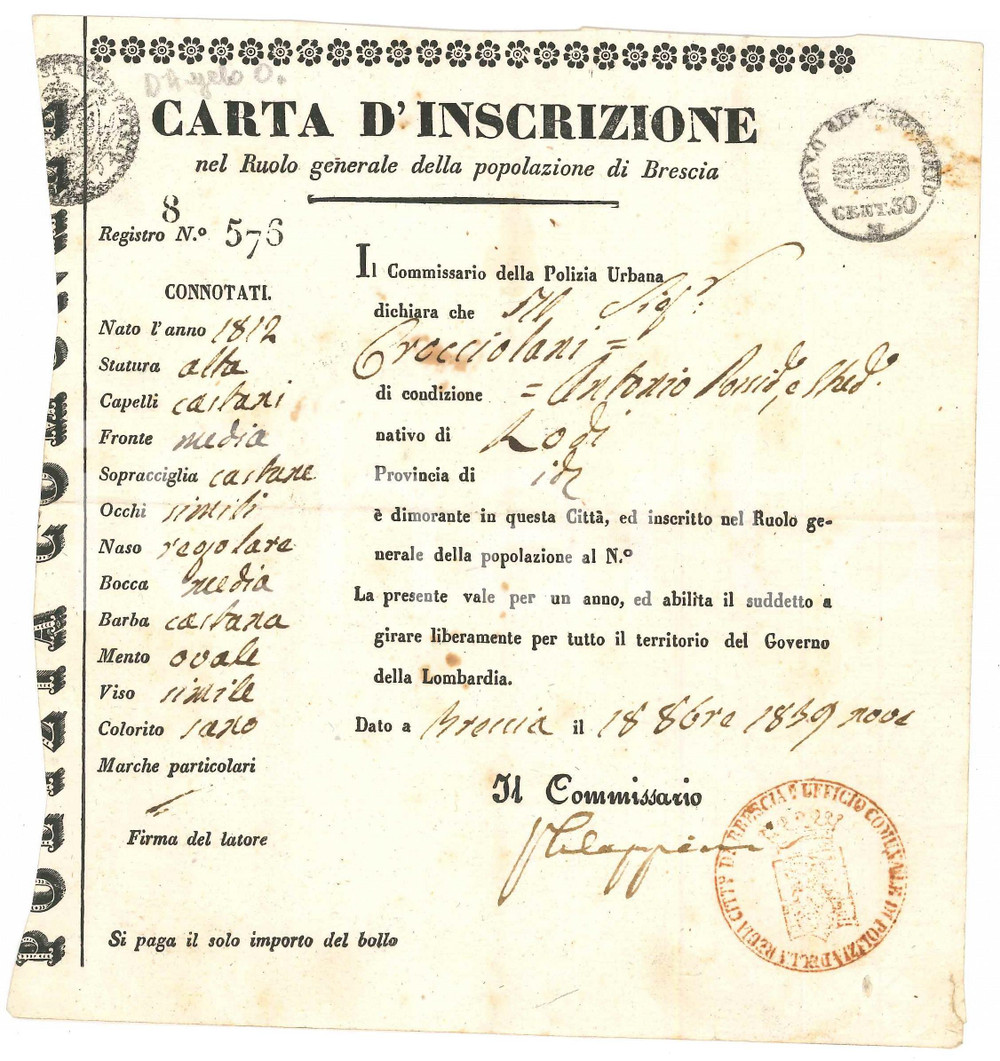 D'Angelo O.
CARTA D'INSCRIZIONE
nel Ruolo generale della popolazione di Brescia
CENT. 30
8
Registro N.º 576
CONNOTATI.
Nato l'anno 1812
Statura alta
Capelli castani
Fronte media
Sopracciglia castane
Occhi simili
Naso regolare
Bocca media
Barba castana
Mento ovale
Viso simile
Colorito sano
Marche particolari
Firma del latore
Si paga il solo importo del bollo
Il Commissario della Polizia Urbana
dichiara che Il Sigr.
Crocciolani =
di condizione = Antonio
nativo di Lodi
Provincia di id
è dimorante in questa Città, ed inscritto nel Ruolo ge-
nerale della popolazione al N.º
La presente vale per un anno, ed abilita il suddetto a
girare liberamente per tutto il territorio del Governo
della Lombardia.
Dato a Brescia il 18 8bre 1839 nove
Il Commissario
REGIA CITTÀ DI BRESCIA UFFICIO COMUNALE DI POLIZIA DELLA